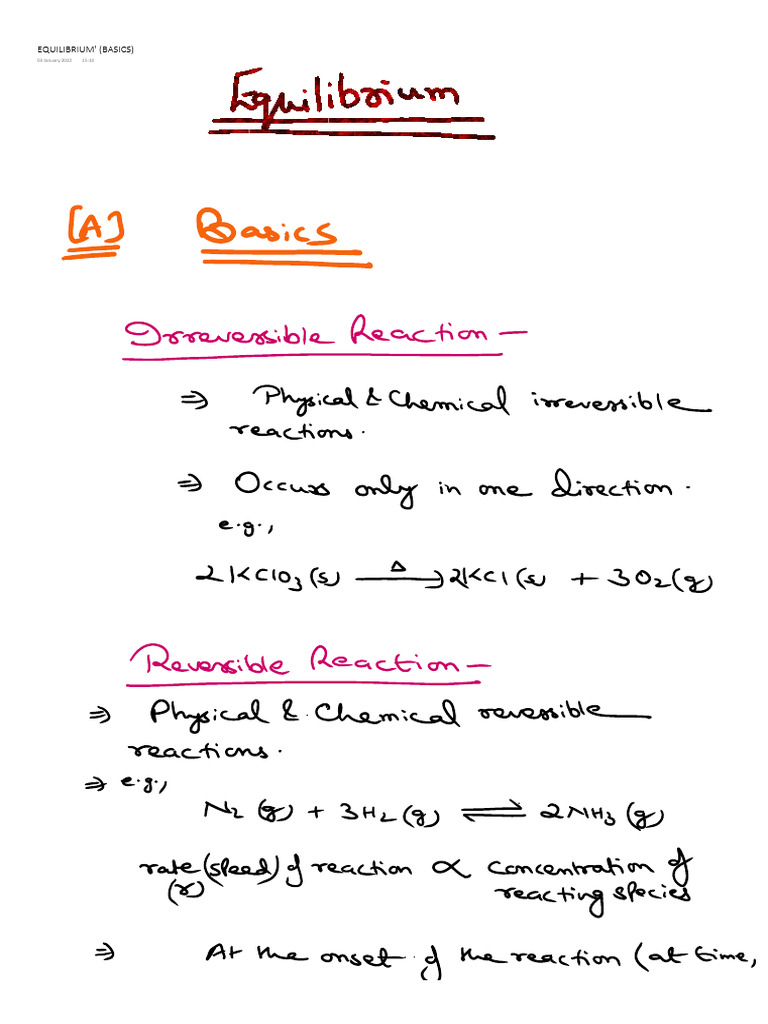 EQUILIBRIUM' (BASICS)
Equilibrium
[A] Basics
Irreversible Reaction –
⇒ Physical & Chemical irreversible
reactions.
⇒ Occurs only in one direction.
e.g.,
2KClO₃(s) —Δ→ 2KCl(s) + 3O₂(g)
Reversible Reaction –
⇒ Physical & Chemical reversible
reactions.
⇒ e.g.,
N₂(g) + 3H₂(g) ⇌ 2NH₃(g)
rate (speed) of reaction ∝ concentration of
(r) reacting species
⇒ At the onset of the reaction (at time,